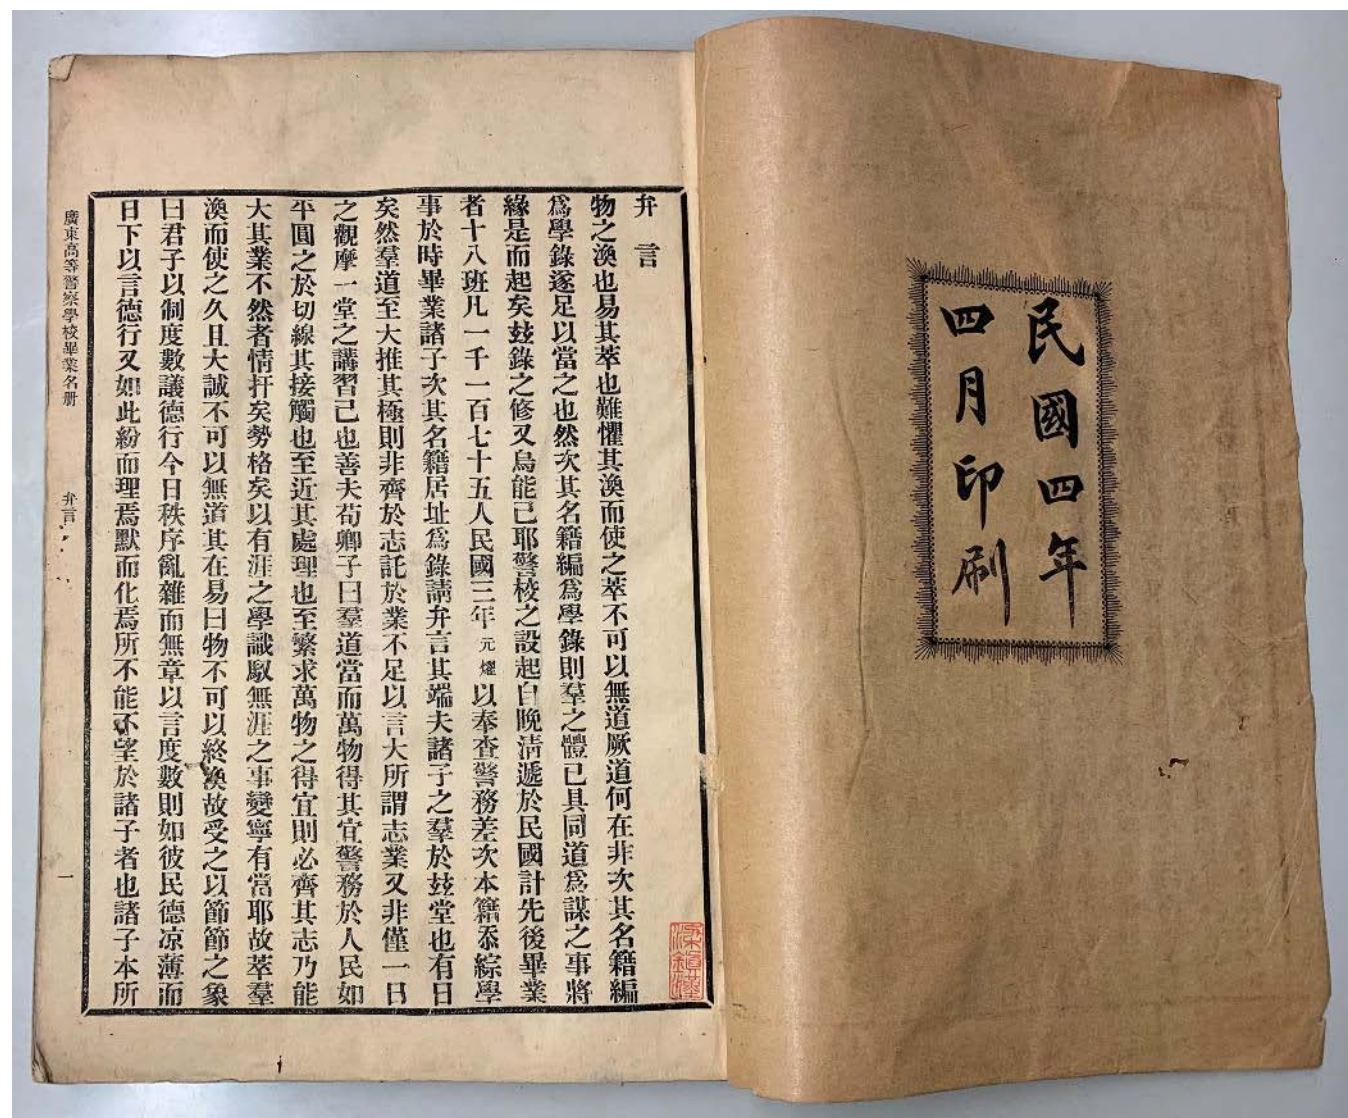 民國四年
四月印刷
弁言
物之渙也易其萃也難懼其渙而使之萃不可以無道厥道何在非次其名籍編
爲學錄遂足以當之也然次其名籍編爲學錄則羣之體已具同道爲謀之事將
緣是而起矣玆錄之修又烏能已耶警校之設起自晚淸遞於民國計先後畢業
者十八班凡一千一百七十五人民國三年元燿以奉查警務差次本籍忝綜學
事於時畢業諸子次其名籍居址爲錄請弁言其端夫諸子之羣於玆堂也有日
矣然羣道至大推其極則非齊於志託於業不足以言大所謂志業又非僅一日
之觀摩一堂之講習已也善夫荀卿子曰羣道當而萬物得其宜警務於人民如
平圓之於切線其接觸也至近其處理也至繁求萬物之得宜則必齊其志乃能
大其業不然者情扞矣勢格矣以有涯之學識馭無涯之事變寧有當耶故萃羣
渙而使之久且大誠不可以無道其在易曰物不可以終渙故受之以節節之象
曰君子以制度數議德行今日秩序亂雜而無章以言度數則如彼民德凉薄而
日下以言德行又如此紛而理焉默而化焉所不能不望於諸子者也諸子本所
廣東高等警察學校畢業名册 弁言 一